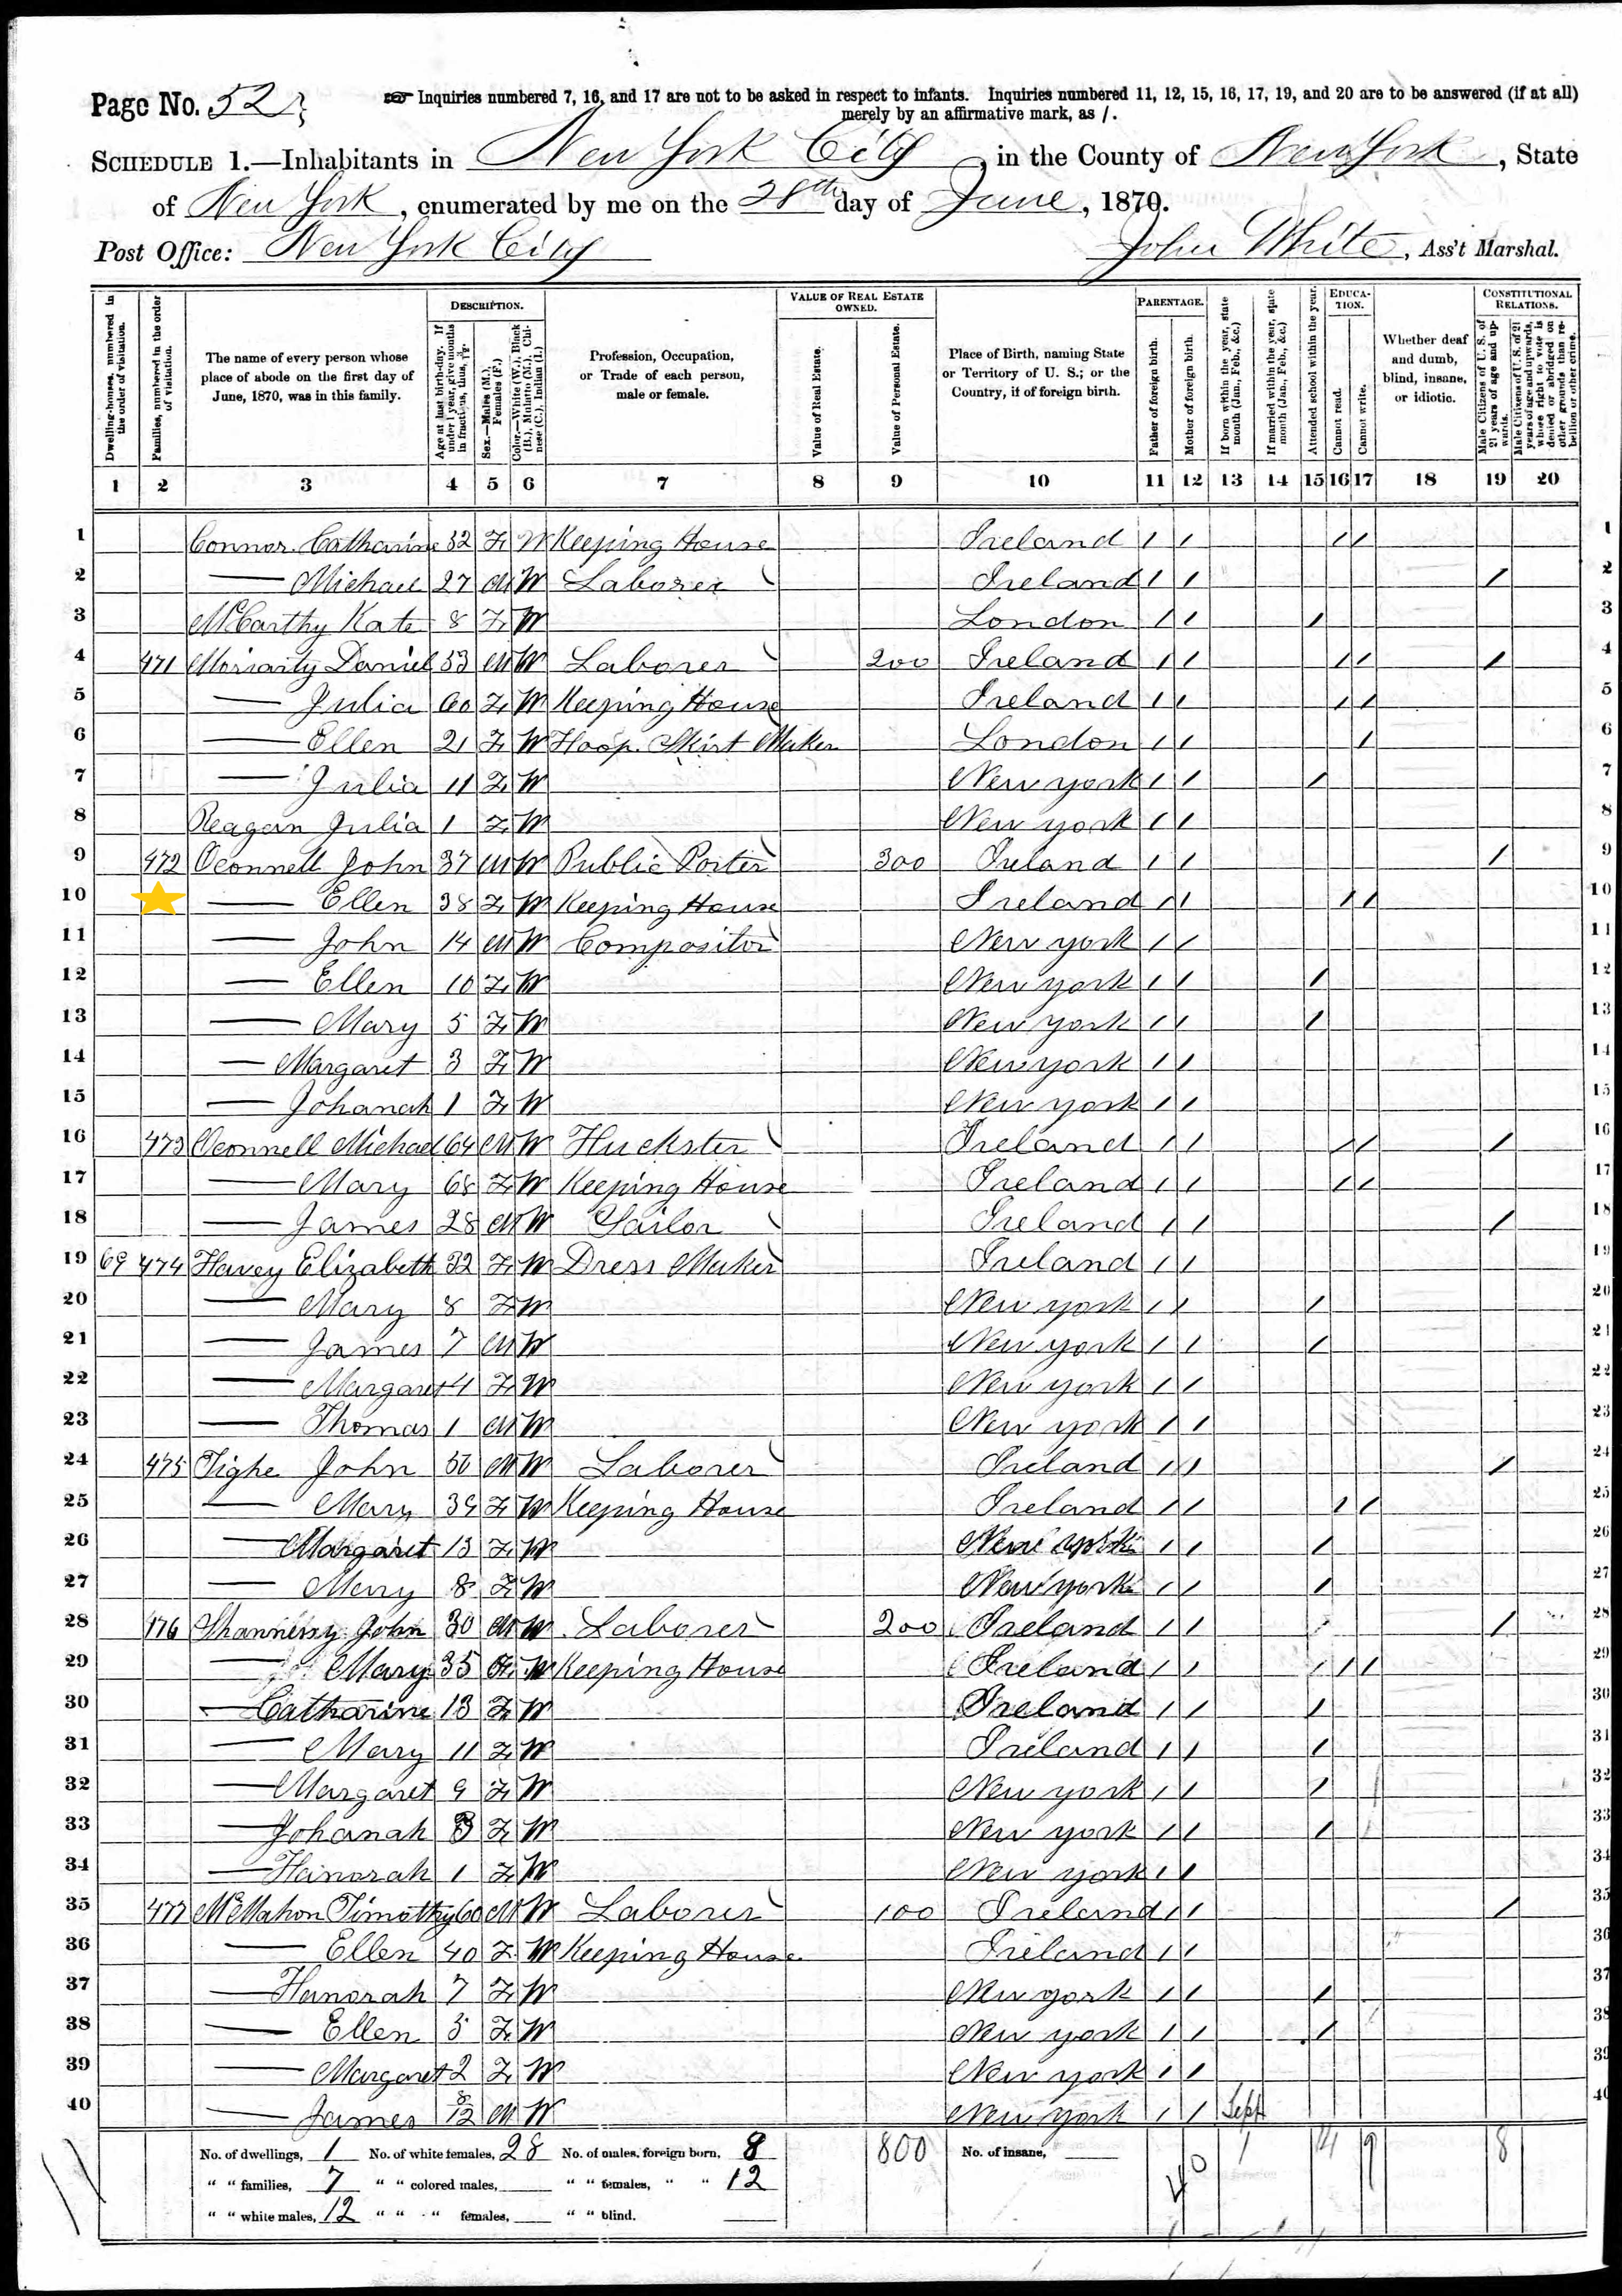 Page No. 52
Inquiries numbered 7, 16, and 17 are not to be asked in respect to infants. Inquiries numbered 11, 12, 15, 16, 17, 19, and 20 are to be answered (if at all)
merely by an affirmative mark, as /.
SCHEDULE 1.—Inhabitants in New York City, in the County of New York, State
of New York, enumerated by me on the 28th day of June, 1870.
Post Office: New York City John White, Ass't Marshal.
Dwelling-houses, numbered in the order of visitation.
Families, numbered in the order of visitation.
The name of every person whose place of abode on the first day of June, 1870, was in this family.
DESCRIPTION.
Age at last birth-day. If under 1 year, give months in fractions, thus, 3/12.
Sex.—Males (M.), Females (F.)
Color.—White (W.), Black (B.), Mulatto (M.), Chinese (C.), Indian (I.)
Profession, Occupation, or Trade of each person, male or female.
VALUE OF REAL ESTATE OWNED.
Value of Real Estate.
Value of Personal Estate.
Place of Birth, naming State or Territory of U. S.; or the Country, if of foreign birth.
PARENTAGE.
Father of foreign birth.
Mother of foreign birth.
If born within the year, state month (Jan., Feb., &c.)
If married within the year, state month (Jan., Feb., &c.)
Attended school within the year.
EDUCATION.
Cannot read.
Cannot write.
Whether deaf and dumb, blind, insane, or idiotic.
CONSTITUTIONAL RELATIONS.
Male Citizens of U. S. of 21 years of age and upwards.
Male Citizens of U. S. of 21 years of age and upwards, whose right to vote is denied or abridged on other grounds than rebellion or other crime.
1 2 3 4 5 6 7 8 9 10 11 12 13 14 15 16 17 18 19 20
1 Connor Catharine 32 F W Keeping House Ireland / / / / 1
2 — Michael 27 M W Laborer Ireland / / / 2
3 McCarthy Kate 8 F W London / / / 3
4 471 Moriarty Daniel 53 M W Laborer 200 Ireland / / / / / 4
5 — Julia 60 F W Keeping House Ireland / / / / 5
6 — Ellen 21 F W Hoop Skirt Maker London / / / 6
7 — Julia 11 F W New york / / / 7
8 Reagan Julia 1 F W New york / / 8
9 472 Oconnell John 37 M W Public Porter 300 Ireland / / / 9
10 — Ellen 38 F W Keeping House Ireland / / / / 10
11 — John 14 M W Compositor New york / / 11
12 — Ellen 10 F W New york / / / 12
13 — Mary 5 F W New york / / / 13
14 — Margaret 3 F W New york / / 14
15 — Johanah 1 F W New york / / 15
16 473 Oconnell Michael 64 M W Huckster Ireland / / / / / 16
17 — Mary 68 F W Keeping House Ireland / / / / 17
18 — James 28 M W Sailor Ireland / / / 18
19 69 474 Havey Elizabeth 32 F W Dress Maker Ireland / / 19
20 — Mary 8 F W New york / / / 20
21 — James 7 M W New york / / / 21
22 — Margaret 4 F W New york / / 22
23 — Thomas 1 M W New york / / 23
24 475 Tighe John 50 M W Laborer Ireland / / / 24
25 — Mary 39 F W Keeping House Ireland / / / / 25
26 — Margaret 13 F W New york / / / 26
27 — Mary 8 F W New york / / / 27
28 476 John 30 M W Laborer 200 Ireland / / / 28
29 — Mary 35 F W Keeping House Ireland / / / / / 29
30 — Catharine 13 F W Ireland / / / 30
31 — Mary 11 F W Ireland / / / 31
32 — Margaret 9 F W New york / / / 32
33 — Johanah F W New york / / / 33
34 — Hanorah 1 F W New york / / 34
35 477 McMahon Timothy 60 M W Laborer 100 Ireland / / / 35
36 — Ellen 40 F W Keeping House Ireland / / 36
37 — Hanorah 7 F W New york / / / 37
38 — Ellen 5 F W New york / / / 38
39 — Margaret 2 F W New york / / 39
40 — James 8/12 M W New york / / Sept 40
No. of dwellings, 1 No. of white females, 28 No. of males, foreign born, 8 800 No. of insane, 40 1 14 9 8
" " families, 7 " " colored males, " " females, " " 12
" " white males, 12 " " " females, " " blind.